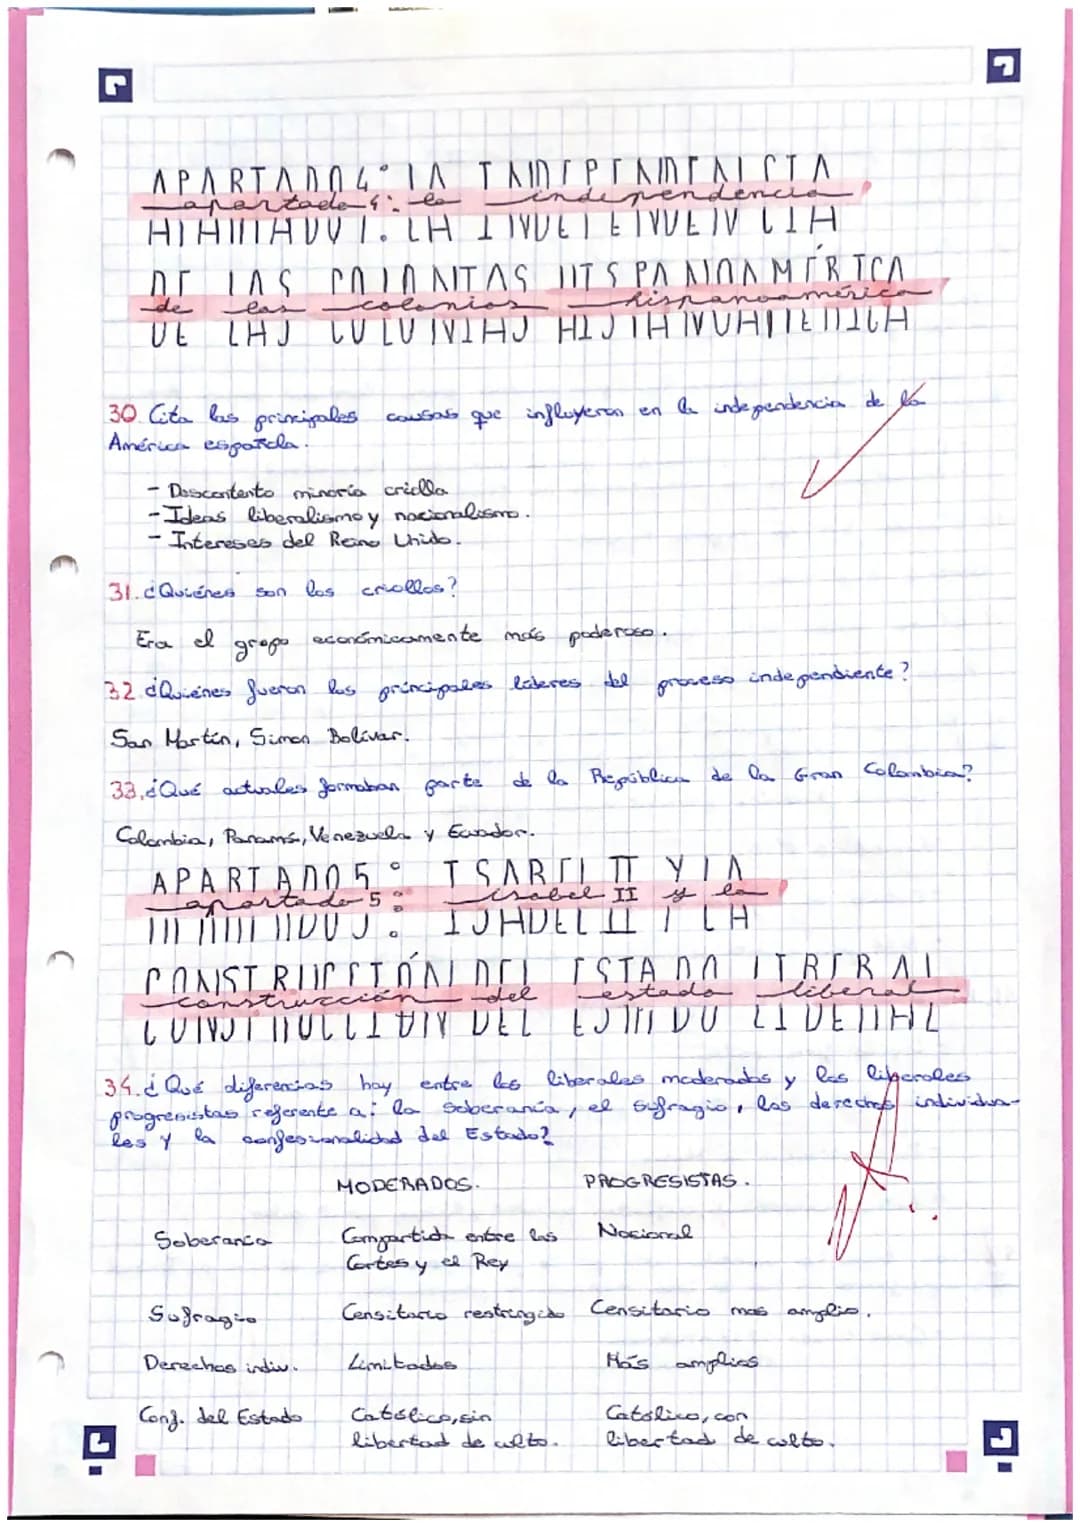 APARTADO 4: LA INDEPENDENCIA
apartado 4: la independencia
DE LAS COLONIAS HISPANOAMÉRICA
de las colonias hispanoamérica
30. Cita las principales causas que influyeron en la independencia de la
América española.
- Descontento minoría criolla
- Ideas liberalismo y nacionalismo.
- Intereses del Reino Unido.
31. ¿Quiénes son los criollos?
Era el grupo económicamente más poderoso.
32. ¿Quiénes fueron los principales líderes del proceso independiente?
San Martín, Simon Bolívar.
33. ¿Qué actuales formaban parte de la República de la Gran Colombia?
Colombia, Panamá, Venezuela y Ecuador.
APARTADO 5: ISABEL II Y LA
apartado 5: isabel II y la
CONSTRUCCIÓN DEL ESTADO LIBERAL
construcción del estado liberal
34. ¿Qué diferencias hay entre los liberales moderados y los liberales
progresistas referente a: la soberanía, el sufragio, los derechos individua-
les y la confesionalidad del Estado?
MODERADOS. PROGRESISTAS.
Soberanía Compartida entre las Nacional
Cortes y el Rey
Sufragio Censitario restringido Censitario mas amplio.
Derechos indiv. Limitados Más amplios
Conf. del Estado Católico, sin Católico, con
libertad de culto. libertad de culto.